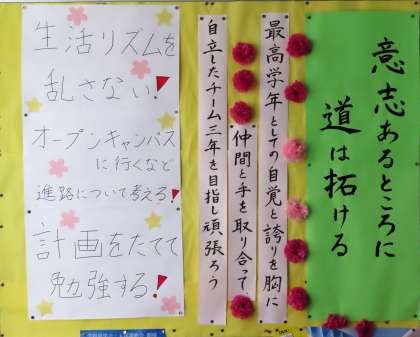 意志あるところに
道は拓ける
最高学年としての自覚と誇りを胸に
仲間と手を取り合って
自立したチーム三年を目指し頑張ろう
生活リズムを
乱さない!
オープンキャンパス
に行くなど
進路について考える!
計画をたてて
勉強する!